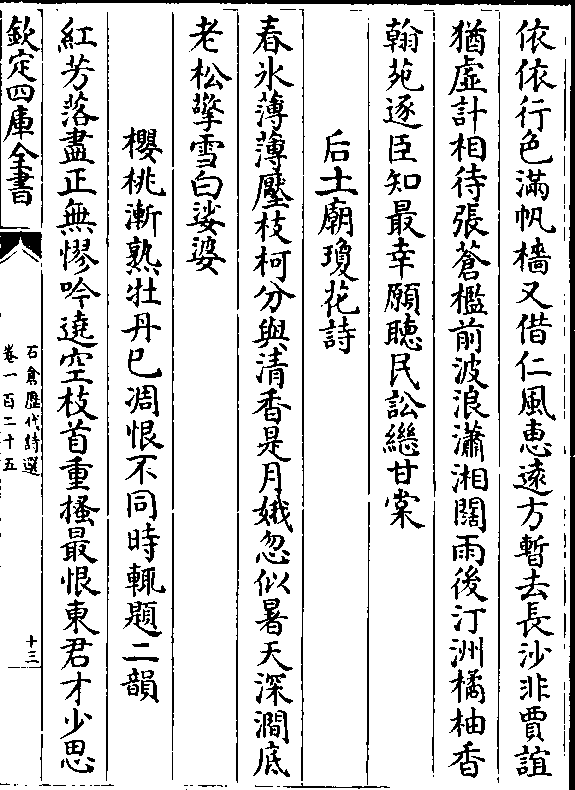 依依行色滿帆檣又借仁風惠遠方暫去長沙非賈誼
猶虛計相待張蒼檻前波浪瀟湘闊雨後汀洲橘柚香
翰苑逐臣知最幸願聽民訟繼甘棠
后土廟瓊花詩
春氷薄薄壓枝柯分與清香是月娥忽似暑天深澗底
老松擎雪白娑婆
櫻桃漸熟牡丹已凋恨不同時輒題二韻
紅芳落盡正無憀吟遶空枝首重搔最恨東君才少思
欽定四庫全書
石倉歷代詩選
卷一百二十五
十三